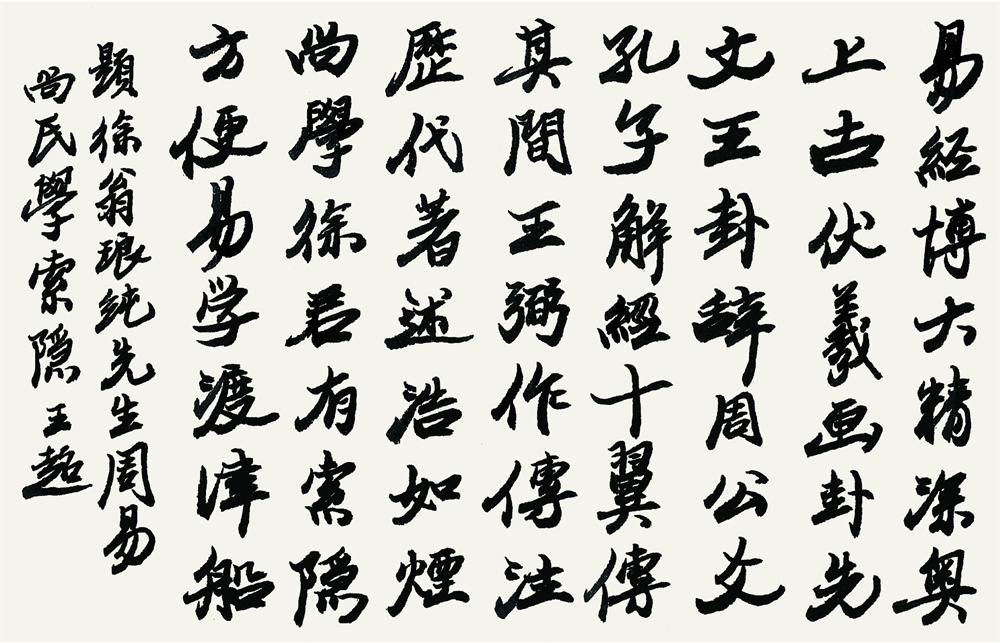 易經博大精深奧
上古伏羲画卦先
文王卦辞周公爻
孔子解經十翼傳
其間王弼作傳注
歷代著述浩如煙
尚學徐君有索隱
方便易学渡津船
題徐翁琅純先生周易
尚氏學索隱 王起